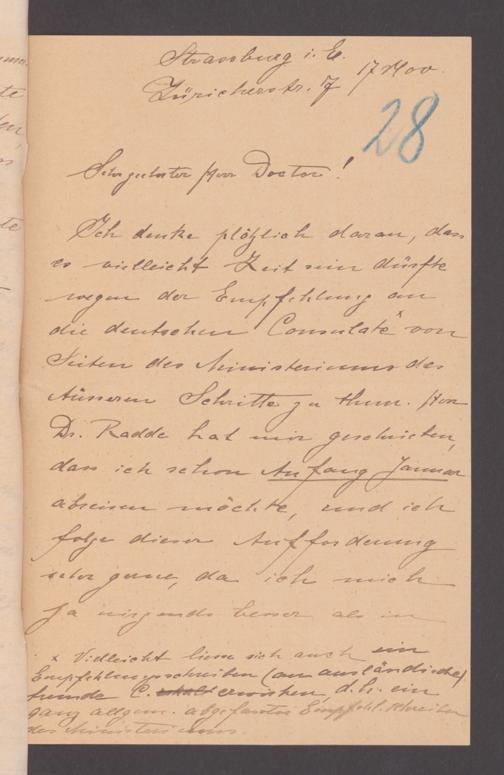 Strassburg i. E.
Züricherstr. 7 17 Nov.
28
Sehr geehrter Herr Doctor!
Ich denke plötzlich daran, dass
es vielleicht Zeit sein dürfte
wegen der Empfehlung an
die deutschen Consulate x von
Seiten des Ministeriums des
Äusseren Schritte zu thun. Herr
Dr. Radde hat mir geschrieben,
dass ich schon Anfang Januar
abreisen möchte, und ich
folge dieser Aufforderung
sehr gerne, da ich mich
ja nirgends besser als in
x Vielleicht liesse sich auch ein
Empfehlungsschreiben (an ausländische)
C. erwirken, d. h. ein
ganz allgem. abgefasstes Empfehl. schreiben
des Ministeriums.